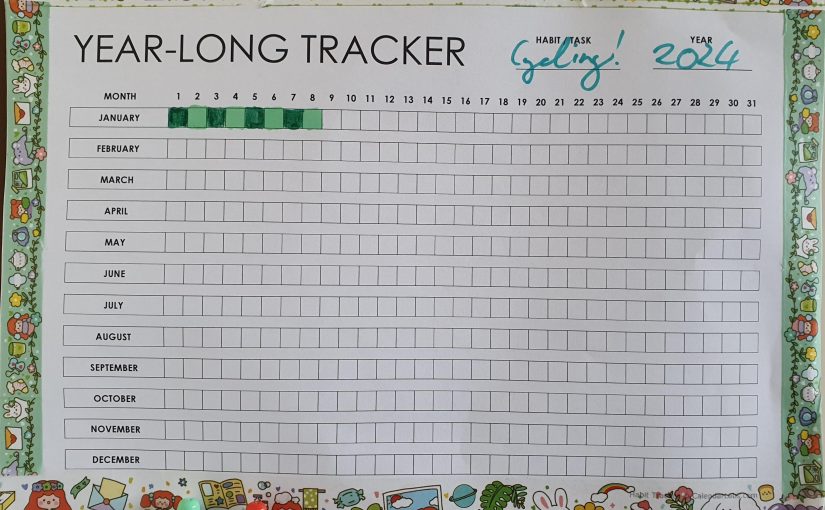 YEAR-LONG TRACKER
HABIT / TASK
Cycling!
YEAR
2024
MONTH 1 2 3 4 5 6 7 8 9 10 11 12 13 14 15 16 17 18 19 20 21 22 23 24 25 26 27 28 29 30 31
JANUARY
FEBRUARY
MARCH
APRIL
MAY
JUNE
JULY
AUGUST
SEPTEMBER
OCTOBER
NOVEMBER
DECEMBER